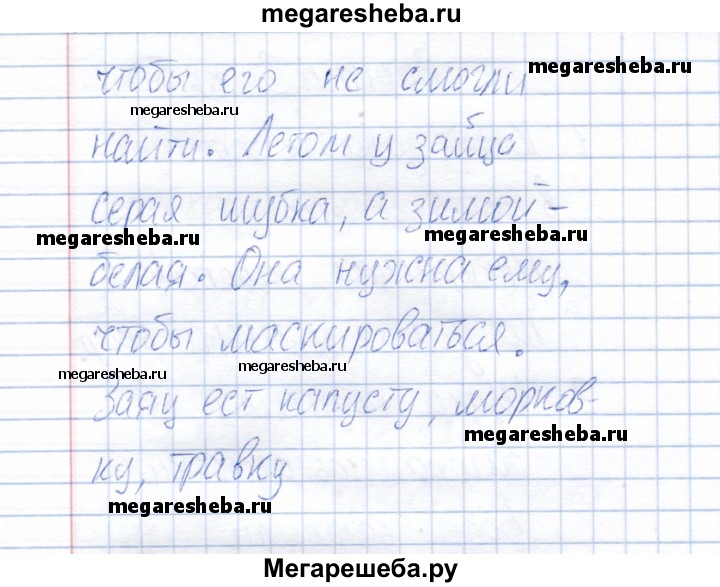 megaresheba.ru
чтобы его не смогли
megaresheba.ru
megaresheba.ru
найти. Летом у зайца
серая шубка, а зимой -
megaresheba.ru
megaresheba.ru
белая. Она нужна ему,
чтобы маскироваться.
megaresheba.ru
megaresheba.ru
Заяц ест капусту, морков-
megaresheba.ru
ку, травку
megaresheba.ru
Мегарешеба.ру